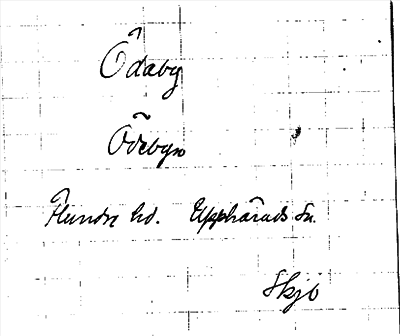 Ödaby
Ödebyn
Flundre hd. Upphärads sn.
Skjö